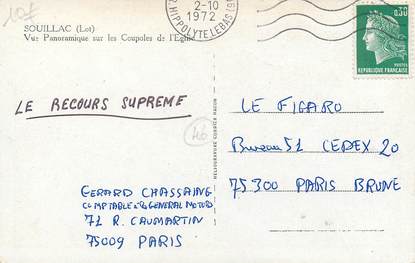 107
SOUILLAC (Lot)
Vue Panoramique sur les Coupoles de l'Eglise
2-10
1972
R. HIPPOLYTE LEBAS (9
0,30
POSTES
REPUBLIQUE FRANÇAISE
LE RECOURS SUPREME
46
HELIOGRAVURE COMBIER MACON
LE FIGARO
Bureau 51 CEDEX 20
75300 PARIS BRUNE
GERARD CHASSAING
COMPTABLE à GENERAL MOTORS
71 R. CAUMARTIN
75009 PARIS